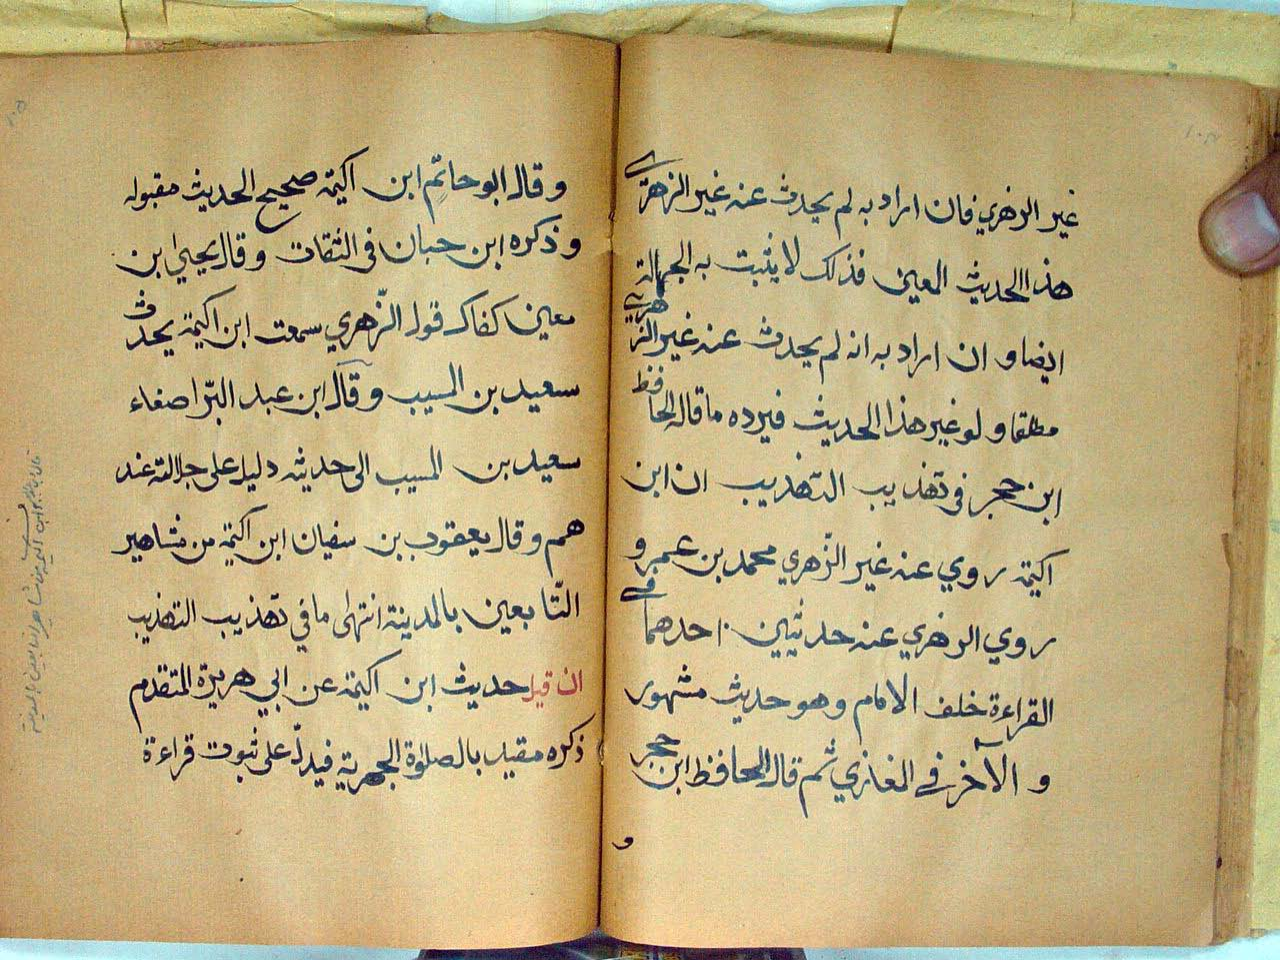 غير الزهري فان اراد به لم يحدث عنه غير الزهري في
هذا الحديث المعين فذلك لا يثبت به الجهالة
ايضا و ان اراد به انه لم يحدث عنه غير الزهري
مطلقا و لو غير هذا الحديث فيرده ما قاله الحافظ
ابن حجر في تهذيب التهذيب ان ابن
اكيمة روي عنه غير الزّهري محمد بن عمرو و
روي الزهري عنه حديثين احدهما في
القراءة خلف الامام وهو حديث مشهور
و الآخر في المغازي ثم قال الحافظ ابن حجر
و
و قال ابو حاتم ابن اكيمة صحيح الحديث مقبوله
و ذكره ابن حبان في الثقات و قال يحيي ابن
معين كفاك قول الزّهري سمعت ابن اكيمة يحدث
سعيد بن المسيب و قال ابن عبد البرّ اصغاء
سعيد بن المسيب الى حديثه دليل على جلالته عند
هم و قال يعقوب بن سفيان ابن اكيمة من مشاهير
التّابعين بالمدينة انتهى ما في تهذيب التهذيب
ان قيل حديث ابن اكيمة عن ابي هريرة المتقدم
ذكره مقيد بالصلوة الجهرية فيدلّ على ثبوت قراءة